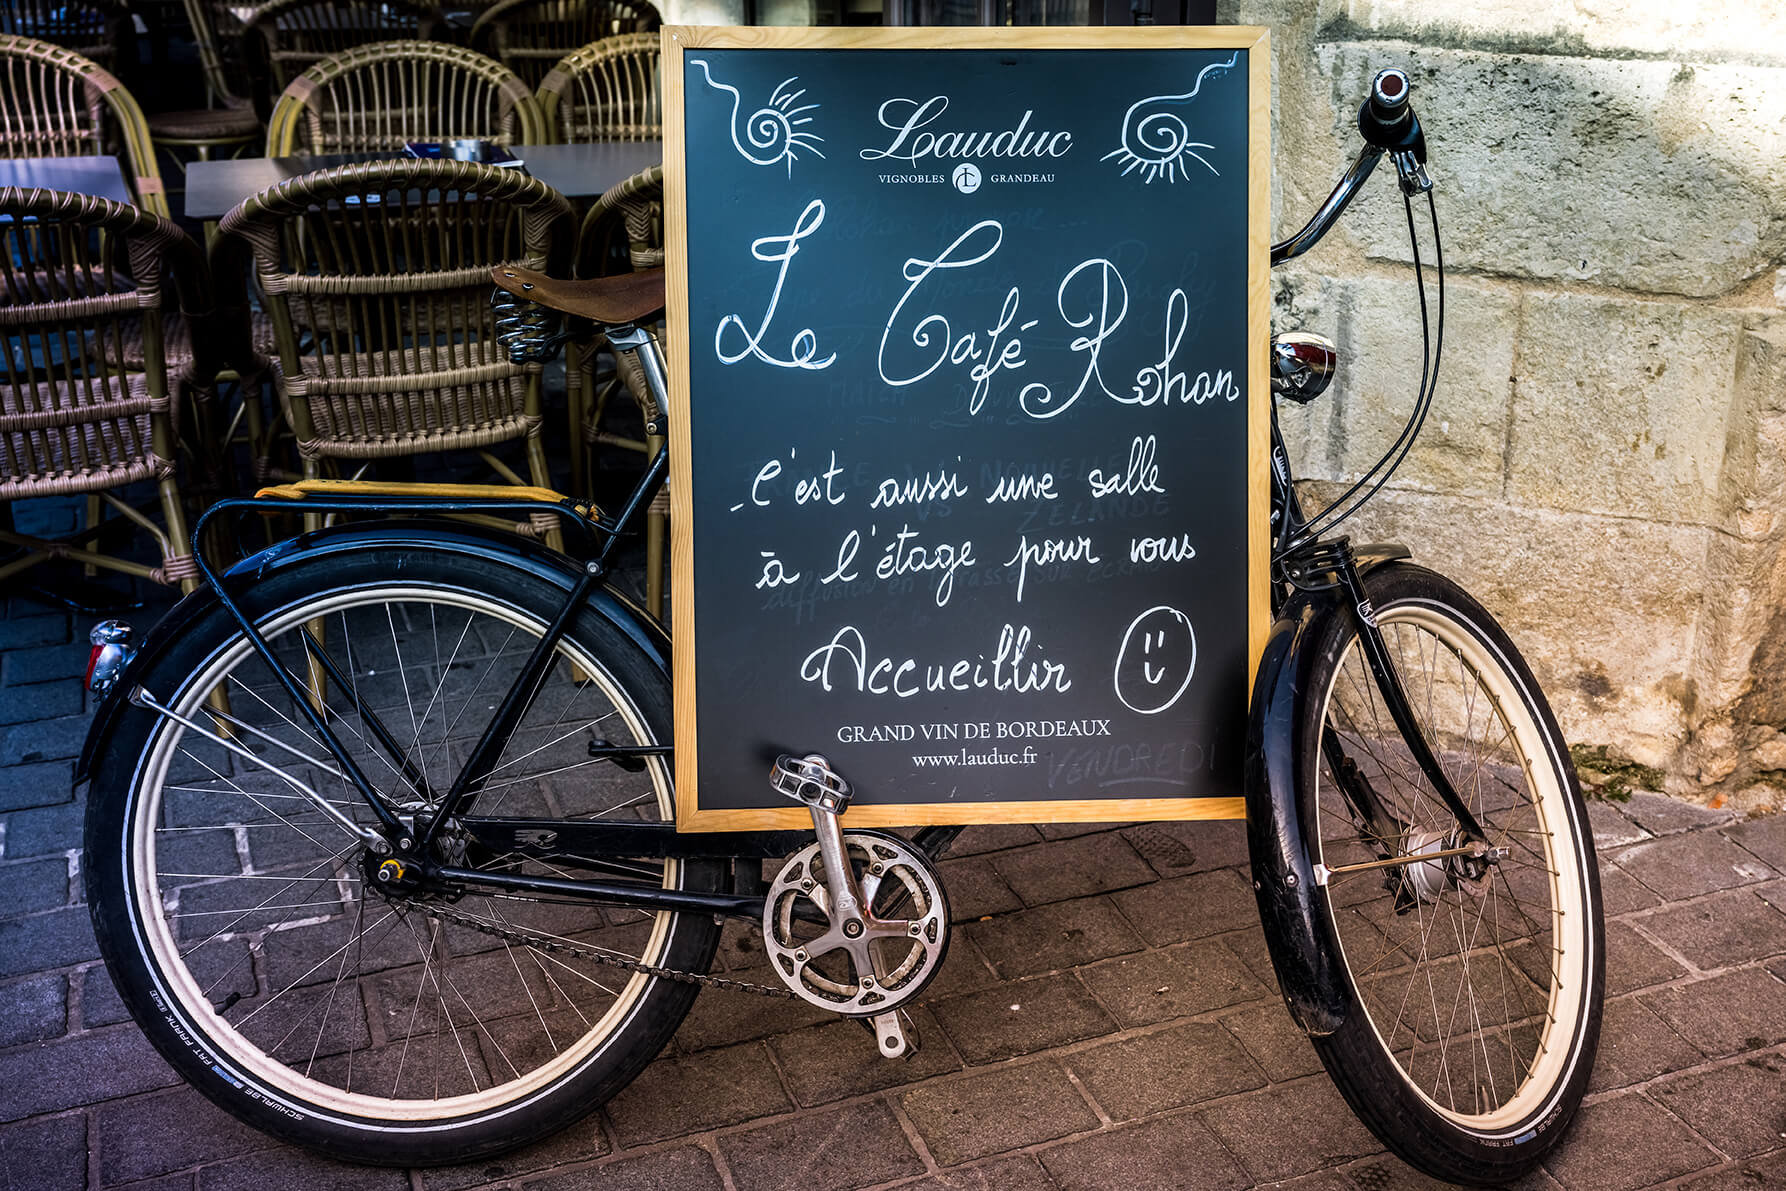 Lauduc
VIGNOBLES L GRANDEAU
Le Café Rohan
C'est aussi une salle
à l'étage pour vous
Accueillir
GRAND VIN DE BORDEAUX
www.lauduc.fr
VENDREDI
SCHWALBE FAT FRANK
SCHWALBE FAT FRANK